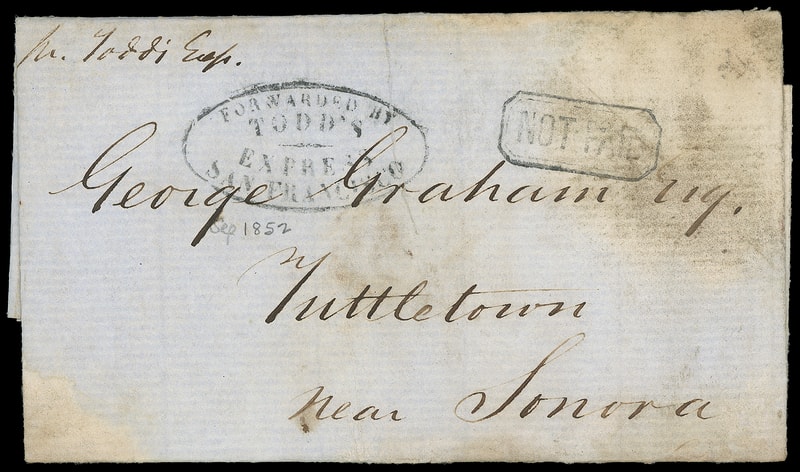 Pr. Todds Exp.
FORWARDED BY
TODD'S
EXPRESS
SAN FRANCISCO
NOT PAID
George Graham Esq.
Sep 1852
Tuttletown
near Sonora